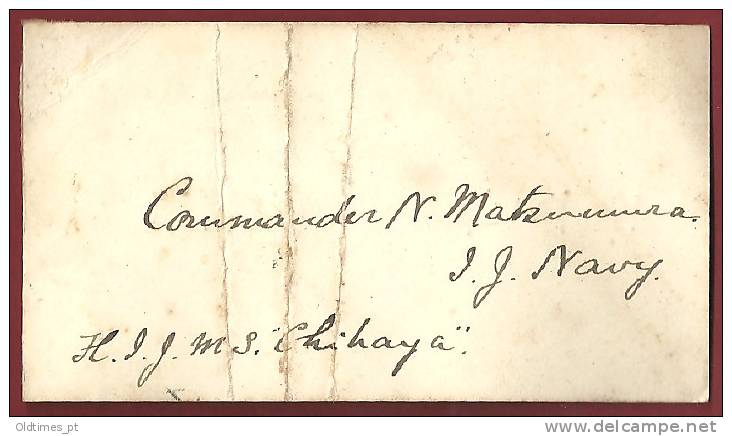 Commander N. Matsumura.
I. J. Navy.
H. I. J. M. S. "Chihaya".
Oldtimes_pt
delcampe.net